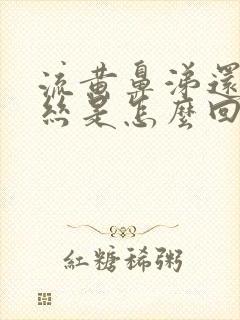 流黃鼻涕還
絲是怎麼回
紅糖稀粥